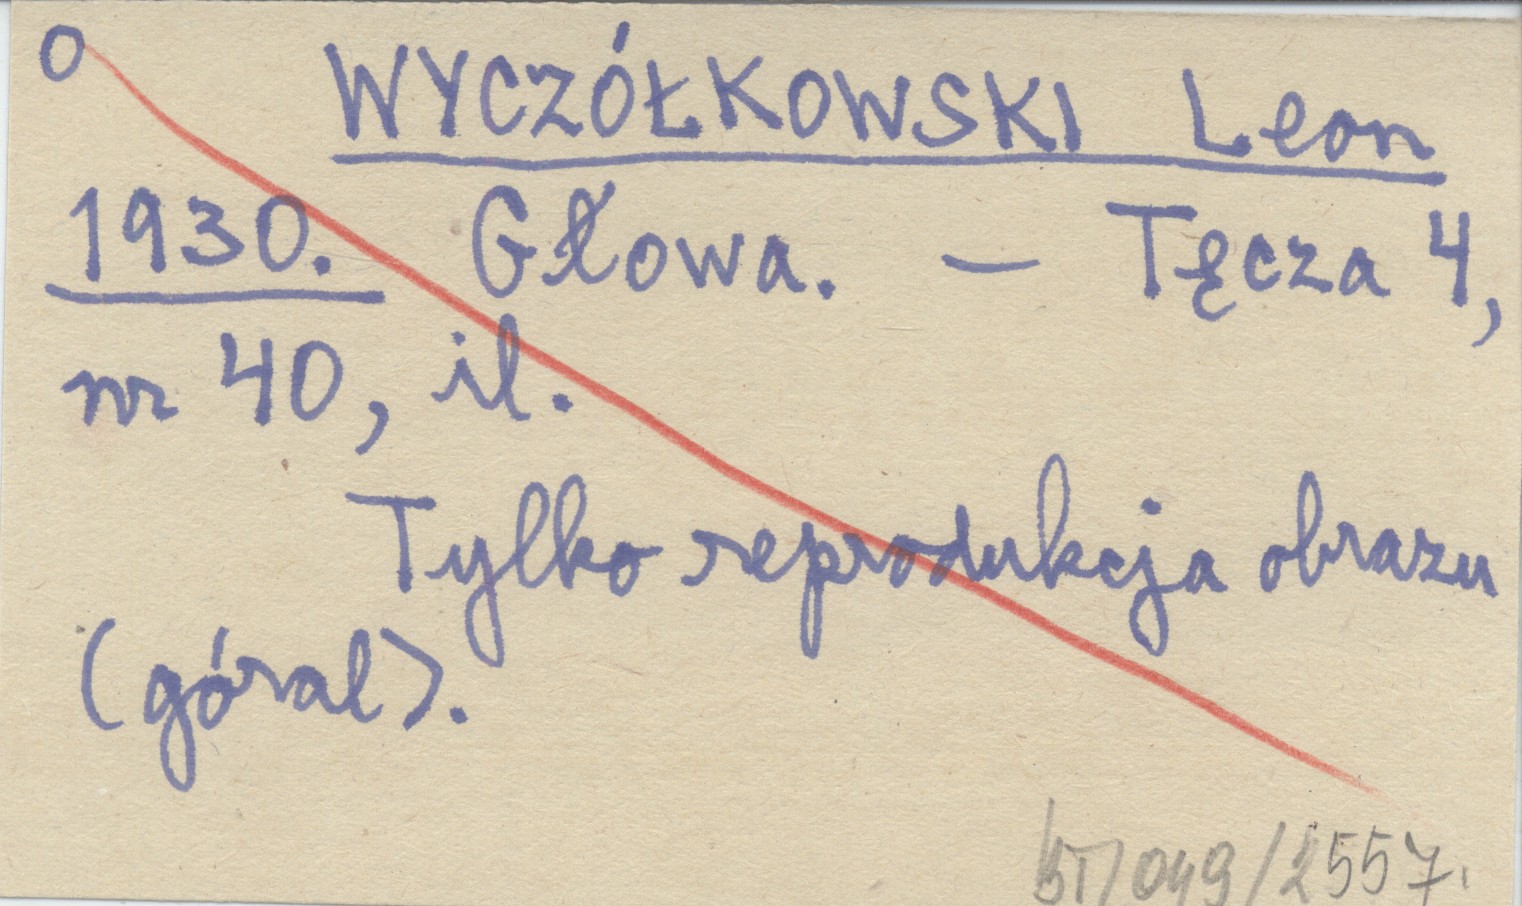 O
WYCZÓŁKOWSKI Leon
1930. Głowa. — Tęcza 4,
nr 40, il.
Tylko reprodukcja obrazu
(góral).
BT/049/2557.